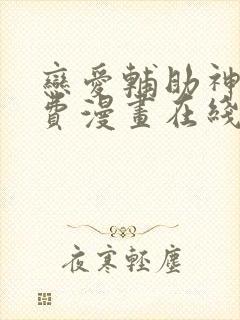 戀愛輔助神
費漫畫在綫
夜寒輕塵